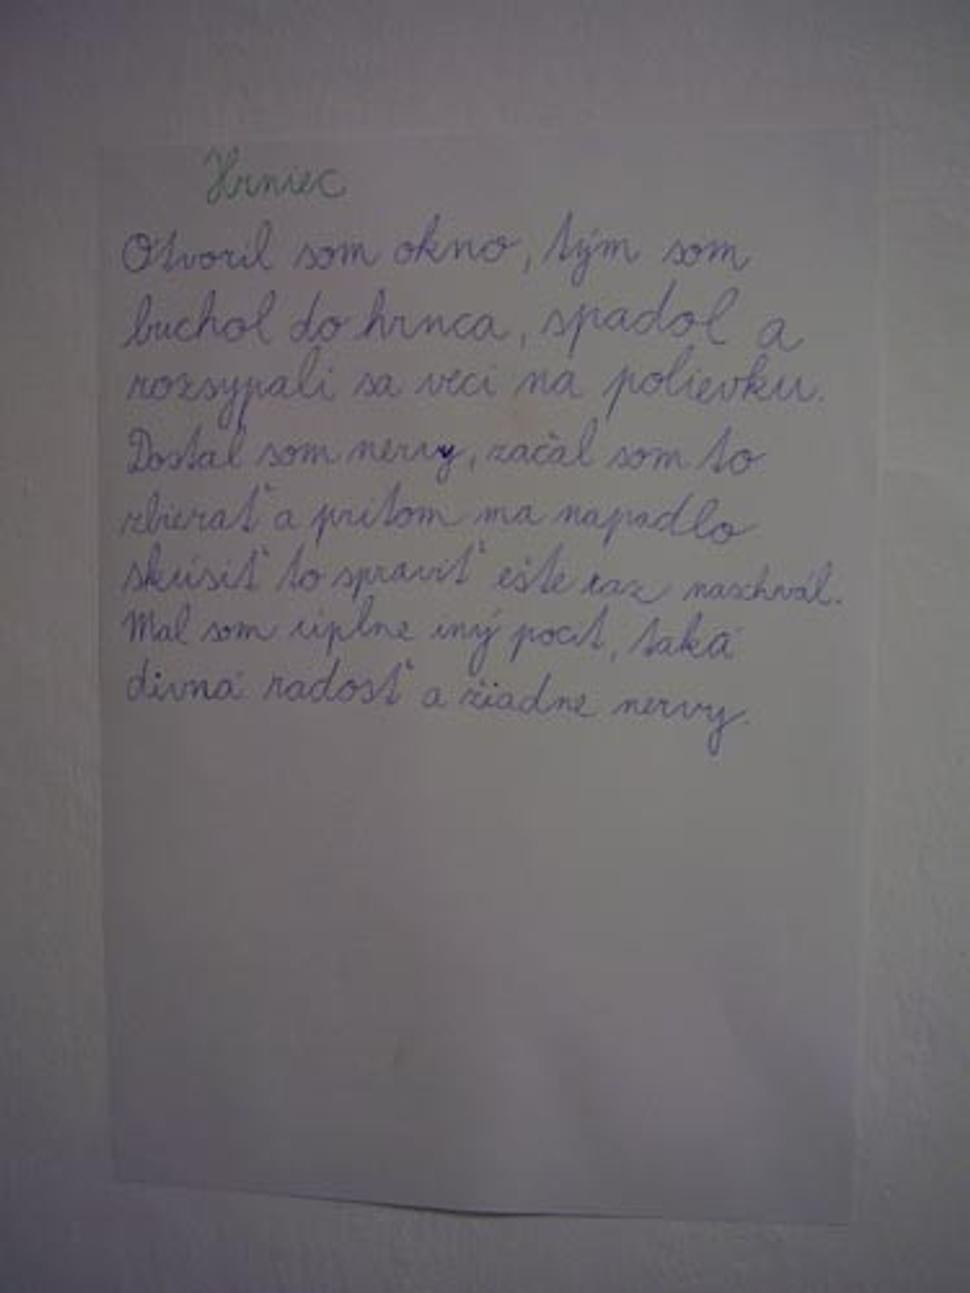 Hrniec
Otvoril som okno, tým som
buchol do hrnca, spadol a
rozsypali sa veci na polievku.
Dostal som nervy, začal som to
zbierať a pritom ma napadlo
skúsiť to spraviť ešte raz naschvál.
Mal som úplne iný pocit, taká
divná radosť a žiadne nervy.